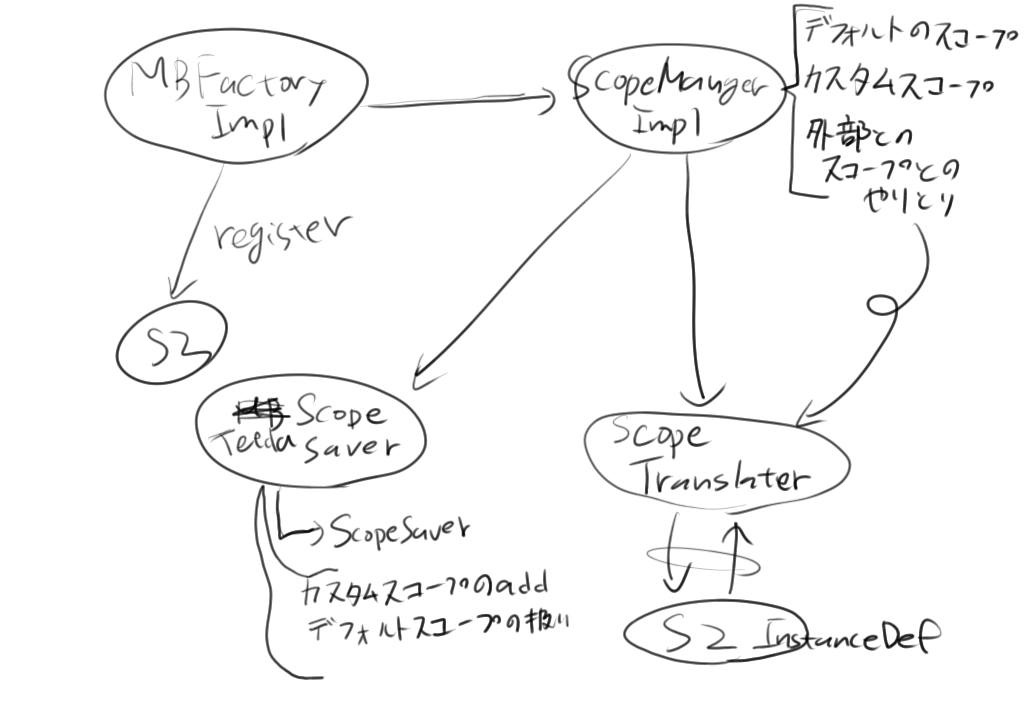 MBFactory
Impl
ScopeManger
Impl
デフォルトのスコープ
カスタムスコープ
外部との
スコープとの
やりとり
register
S2
Scope
Teeda Saver
ScopeSaver
カスタムスコープのadd
デフォルトスコープの扱い
Scope
Translater
S2 InstanceDef